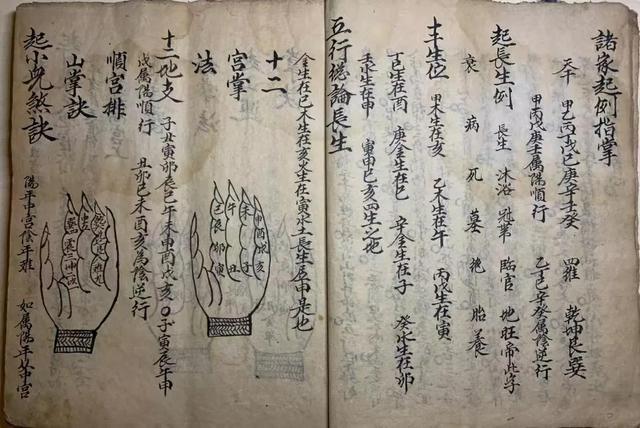 諸家起例指掌
天干 甲乙丙丁戊己庚辛壬癸 四維 乾坤艮巽
甲丙戊庚壬屬陽順行 乙丁己辛癸屬陰逆行
起長生例 長生 沐浴 冠帶 臨官 帝旺
衰 病 死 墓 絕 胎 養
十干生位 甲木生在亥 乙木生在午 丙戊生在寅
丁己生在酉 庚金生在巳 辛金生在子 癸水生在卯
壬水生在申 寅申巳亥四生之地
五行總論長生
金生在巳木生在亥火生在寅水土長生居申是也
十二宮掌法
十二地支 子丑寅卯辰巳午未申酉戌亥○子寅辰午申
戌屬陽順行 丑卯巳未酉亥為陰逆行
順宮排山掌訣
起小兒煞訣 陽年申宮陰年 如屬陽年